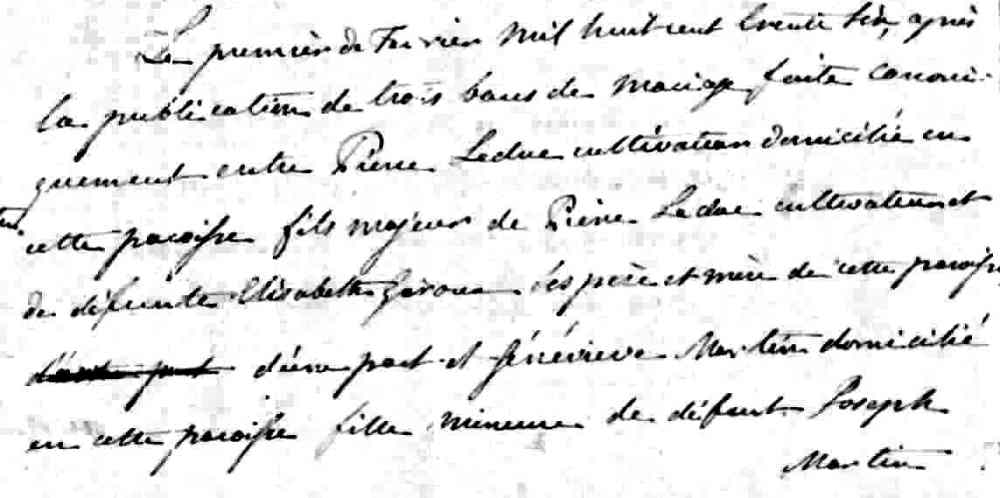 Le premier de Fevrier mil huit cent trente six, après
la publication de trois bans de mariage faite canoni-
quement entre Pierre Leduc cultivateur domicilié en
cette paroisse fils majeur de Pierre Leduc cultivateur et
de défunte Elisabeth ses père et mère de cette paroisse
d'une part et Généviève Martin domicilié
en cette paroisse fille mineure de défunt Joseph
Martin